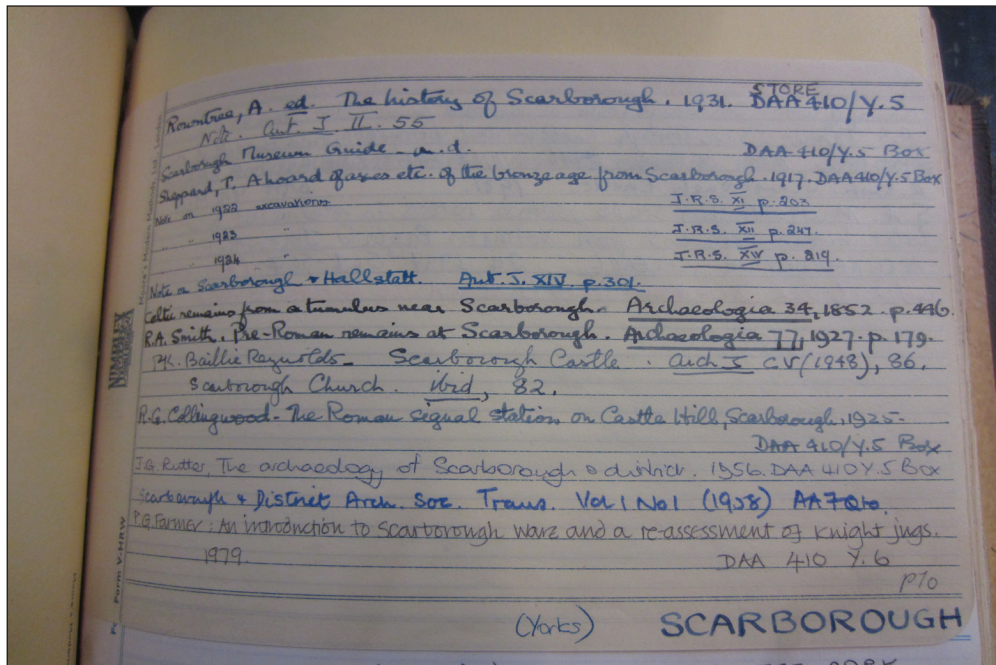 STORE
Rowntree, A. ed. The history of Scarborough. 1931. DAA 410/Y.5
Note. Ant. J. II. 55
Scarborough Museum Guide - n.d. DAA 410/Y.5 Box
Sheppard, T. A hoard of axes etc. of the bronze age from Scarborough. 1917. DAA 410/Y.5 Box
Note on 1922 excavations J.R.S. XI p. 203
" 1923 " J.R.S. XII p. 247.
" 1924 " J.R.S. XIV p. 219.
Note on Scarborough & Hallstatt. Ant. J. XIV p. 301.
Celtic remains from a tumulus near Scarborough. Archaeologia 34, 1852. p. 446.
R.A. Smith. Pre-Roman remains at Scarborough. Archaeologia 77, 1927. p. 179.
P.K. Baillie Reynolds - Scarborough Castle. Arch J CV (1948), 86.
Scarborough Church. ibid, 82.
R.G. Collingwood - The Roman signal station on Castle Hill, Scarborough, 1925 -
DAA 410/Y.5 Box
J.G. Rutter, The archaeology of Scarborough & district. 1956. DAA 410 Y.5 Box
Scarborough & District Arch. Soc. Trans. Vol 1 No 1 (1958)
P.G. Farmer: An introduction to Scarborough ware and a re-assessment of knight jugs.
1979. DAA 410 Y.6
PTO
(Yorks) SCARBOROUGH
Form V-HRW